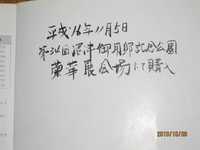 平成16年11月5日
第34回沼津御用邸記念公園
蘭華展会場にて購入
2010/10/09